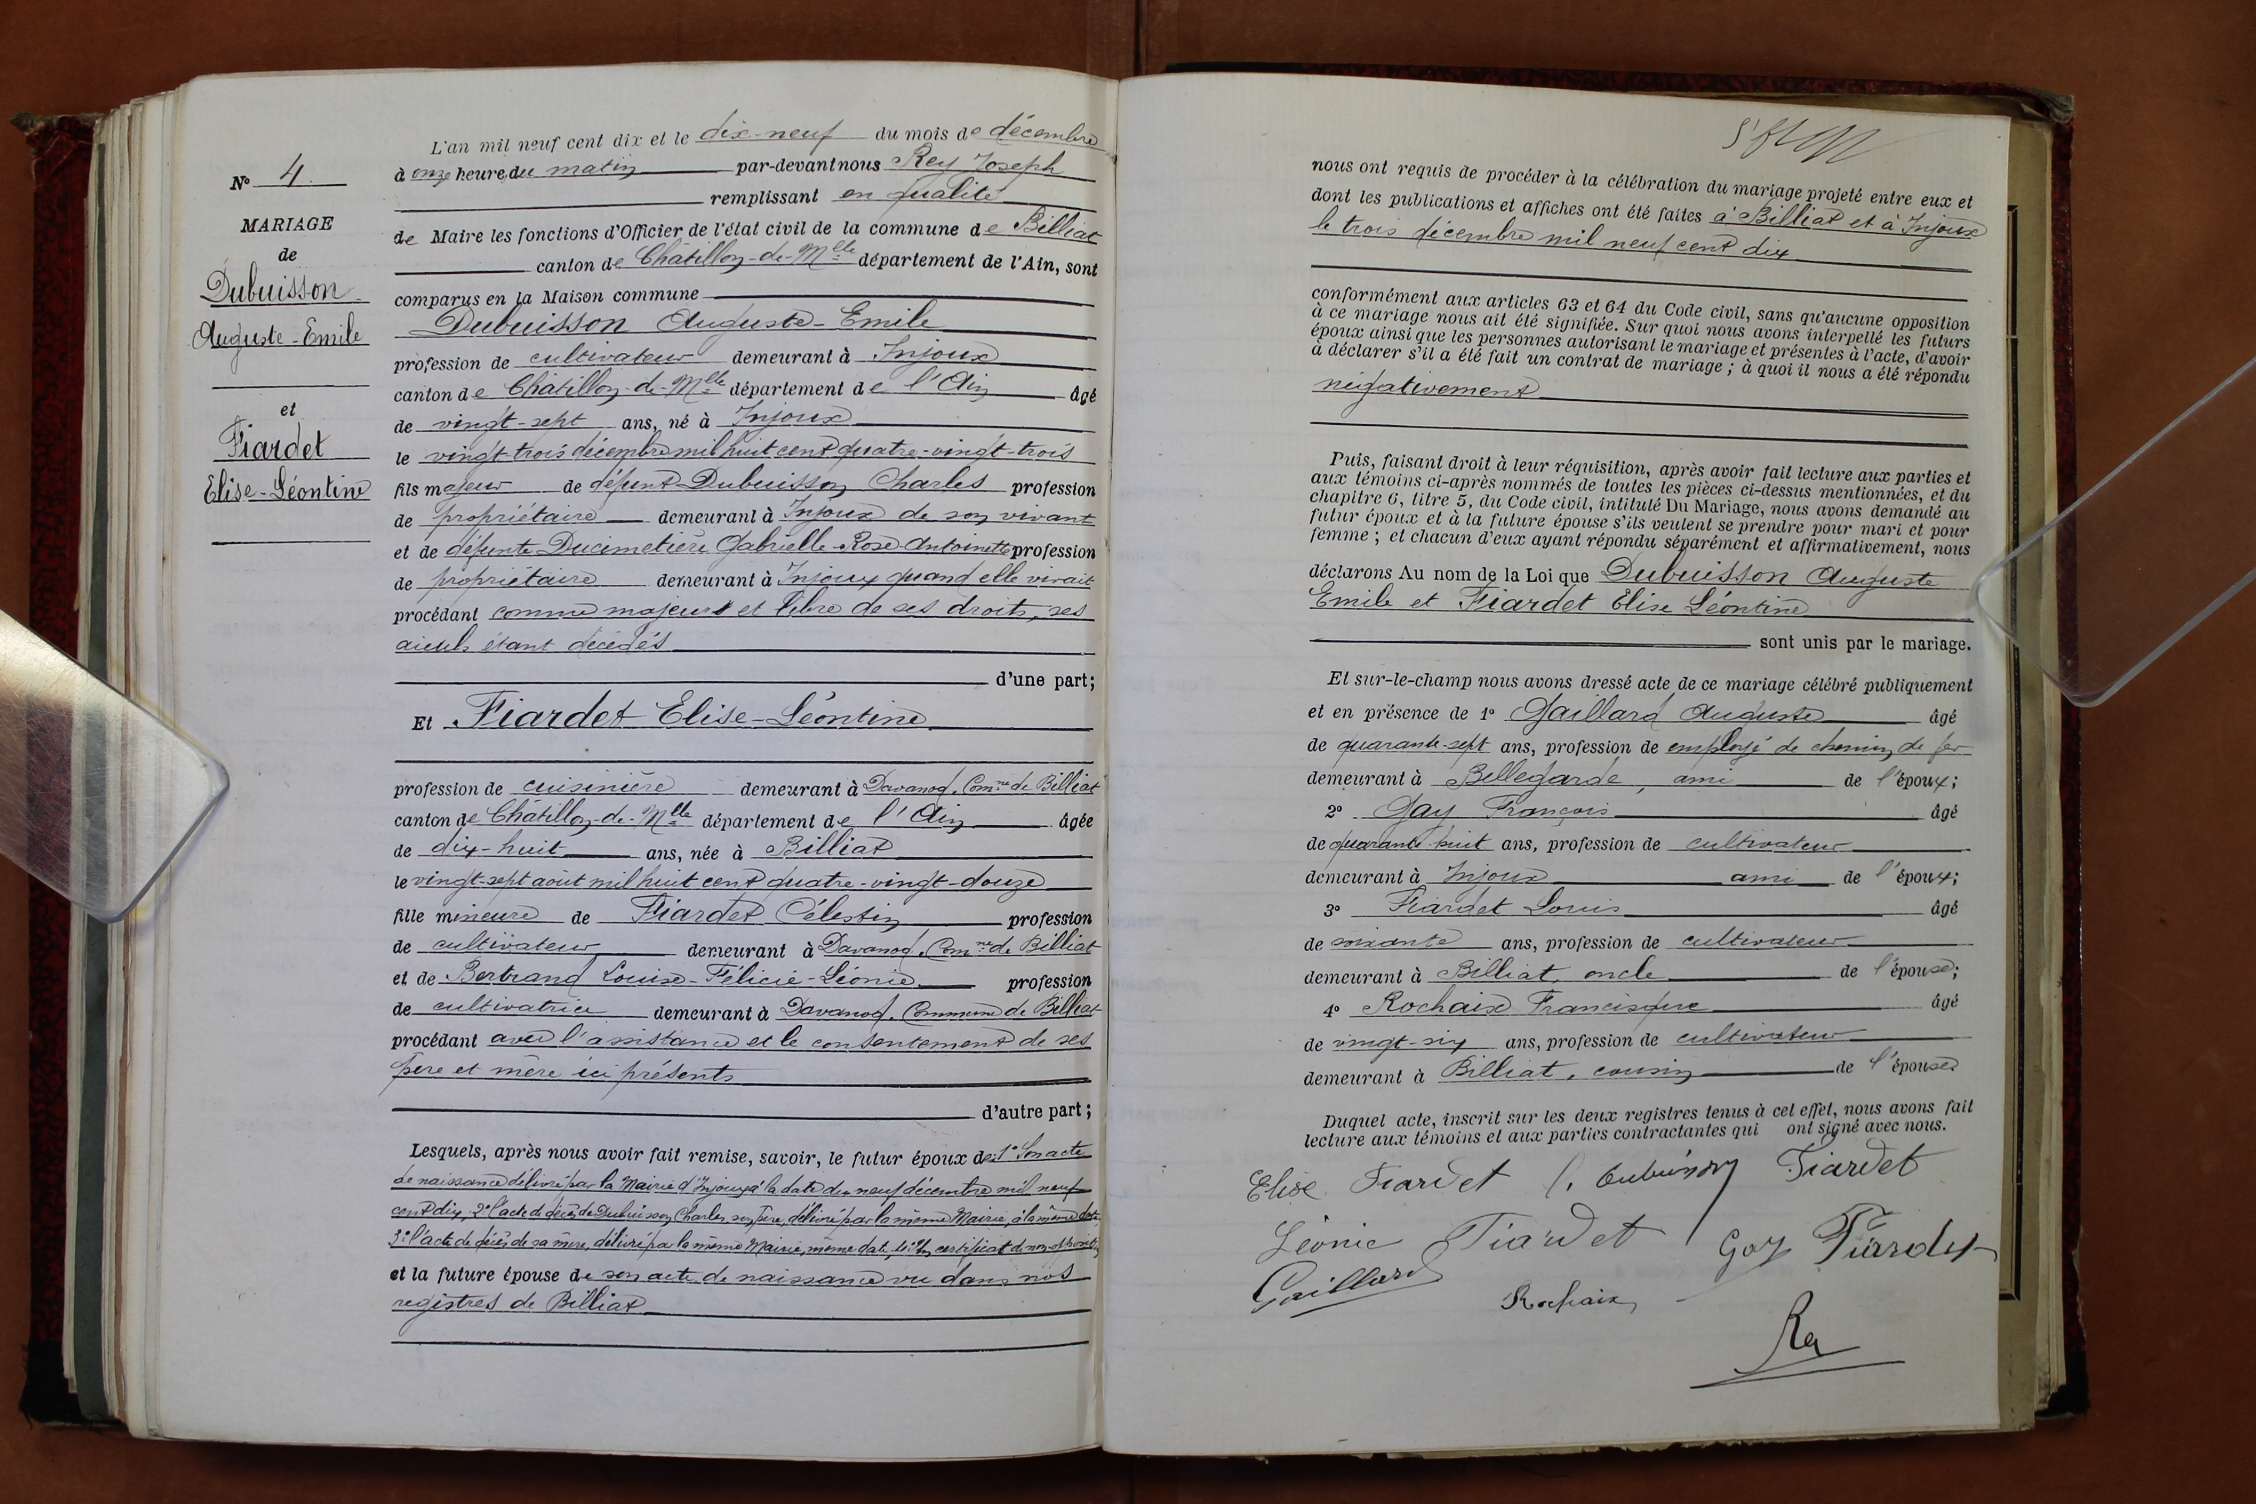 N° 4.
MARIAGE
de
Dubuisson
Auguste-Emile
et
Fiardet
Elise-Léontine
L'an mil neuf cent dix et le dix-neuf du mois de décembre
à onze heure du matin par-devant nous Rey Joseph
remplissant en qualité
de Maire les fonctions d'Officier de l'état civil de la commune de Billiat
canton de Châtillon-de-Mlle département de l'Ain, sont
comparus en la Maison commune
Dubuisson Auguste-Emile
profession de cultivateur demeurant à Injoux
canton de Châtillon-de-Mlle département de l'Ain âgé
de vingt-sept ans, né à Injoux
le vingt-trois décembre mil huit cent quatre-vingt-trois
fils majeur de défunt Dubuisson Charles profession
de propriétaire demeurant à Injoux de son vivant
et de défunte Ducimetière Gabrielle-Rose-Antoinette profession
de propriétaire demeurant à Injoux quand elle vivait
procédant comme majeur et libre de ses droits, ses
aïeuls étant décédés
d'une part;
Et Fiardet Elise-Léontine
profession de cuisinière demeurant à Davanod, Comne de Billiat
canton de Châtillon-de-Mlle département de l'Ain âgée
de dix-huit ans, née à Billiat
le vingt-sept août mil huit cent quatre-vingt-douze
fille mineure de Fiardet Célestin profession
de cultivateur demeurant à Davanod, Comne de Billiat
et de Bertrand Louise-Félicie-Léonie profession
de cultivatrice demeurant à Davanod, Commune de Billiat
procédant avec l'assistance et le consentement de ses
père et mère ici présents
d'autre part;
Lesquels, après nous avoir fait remise, savoir, le futur époux de 1° Son acte
de naissance délivré par la Mairie d'Injoux à la date du neuf décembre mil neuf
cent dix, 2° l'acte de décès de Dubuisson Charles son père, délivré par la même Mairie, à la même date
3° l'acte de décès de sa mère, délivré par la même Mairie, même date, 4° Un certificat de non opposition
et la future épouse de son acte de naissance vu dans nos
registres de Billiat
nous ont requis de procéder à la célébration du mariage projeté entre eux et
dont les publications et affiches ont été faites à Billiat et à Injoux
le trois décembre mil neuf cent dix
conformément aux articles 63 et 64 du Code civil, sans qu'aucune opposition
à ce mariage nous ait été signifiée. Sur quoi nous avons interpellé les futurs
époux ainsi que les personnes autorisant le mariage et présentes à l'acte, d'avoir
à déclarer s'il a été fait un contrat de mariage; à quoi il nous a été répondu
négativement
Puis, faisant droit à leur réquisition, après avoir fait lecture aux parties et
aux témoins ci-après nommés de toutes les pièces ci-dessus mentionnées, et du
chapitre 6, titre 5, du Code civil, intitulé Du Mariage, nous avons demandé au
futur époux et à la future épouse s'ils veulent se prendre pour mari et pour
femme; et chacun d'eux ayant répondu séparément et affirmativement, nous
déclarons Au nom de la Loi que Dubuisson Auguste
Emile et Fiardet Elise Léontine
sont unis par le mariage.
Et sur-le-champ nous avons dressé acte de ce mariage célébré publiquement
et en présence de 1° Gaillard Auguste âgé
de quarante-sept ans, profession de employé de chemin de fer
demeurant à Bellegarde, ami de l'époux;
2° Gay François âgé
de quarante-huit ans, profession de cultivateur
demeurant à Injoux ami de l'époux;
3° Fiardet Louis âgé
de soixante ans, profession de cultivateur
demeurant à Billiat, oncle de l'épouse;
4° Rochaix Francisque âgé
de vingt-six ans, profession de cultivateur
demeurant à Billiat, cousin de l'épouse
Duquel acte, inscrit sur les deux registres tenus à cet effet, nous avons fait
lecture aux témoins et aux parties contractantes qui ont signé avec nous.
Elise Fiardet Dubuisson Fiardet
Léonie Fiardet Gay Fiardet
Gaillard Rochaix
Rey